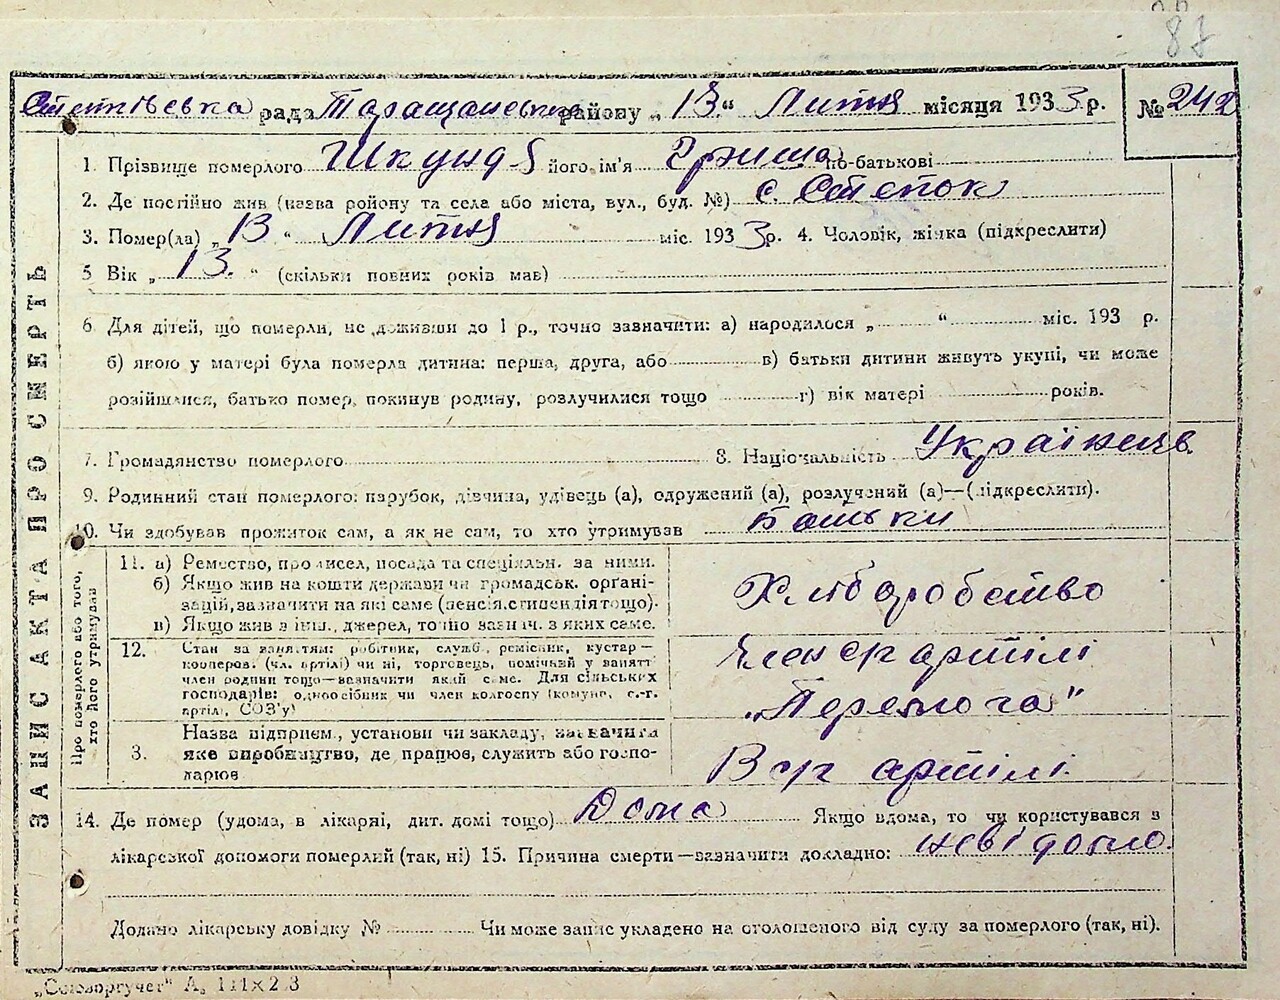 87
Степківська рада Таращанського району „13“ Литня місяця 1933 р. № 242
1. Прізвище померлого Шкунд його ім'я Гриша по-батькові
2. Де постійно жив (назва району та села або міста, вул., буд. №) с. Степок
3. Помер(ла) „13“ Литня міс. 1933 р. 4. Чоловік, жінка (підкреслити)
5 Вік „13.“ (скільки повних років мав)
6. Для дітей, що померли, не доживши до 1 р., точно зазначити: а) народилося „ “ міс. 193 р.
б) якою у матері була померла дитина: перша, друга, або в) батьки дитини живуть укупі, чи може
розійшлися, батько помер, покинув родину, розлучилися тощо г) вік матері років.
7. Громадянство померлого 8. Національність Українець.
9. Родинний стан померлого: парубок, дівчина, удівець (а), одружений (а), розлучений (а)—(підкреслити).
10. Чи здобував прожиток сам, а як не сам, то хто утримував Батьки
ЗАПИС АКТА ПРО СМЕРТЬ
Про померлого або того, хто його утримував
11. а) Ремество, промисел, посада та спеціяльн. за ними.
б) Якщо жив на кошти держави чи громадськ. орґані-
зацій, зазначити на які саме (пенсія, стипендія тощо).
в) Якщо жив з інш. джерел, точно зазнач. з яких саме.
Хліборобство
12. Стан за заняттям: робітник, служб., ремісник, кустар—
кооперов. (чл. артілі) чи ні, торговець, помічний у занятті
член родини тощо—зазначити який саме. Для сільських
господарів: одноосібник чи член колгоспу (комуни, с.-г.
артілі, СОЗ'у)
Член с г артілі
„Перемога"
3. Назва підприєм., установи чи закладу, зазначити
яке виробництво, де працює, служить або госпо-
дарює
В с г артілі.
14. Де помер (удома, в лікарні, дит. домі тощо) Дома Якщо вдома, то чи користувався з
лікарської допомоги померлий (так, ні) 15. Причина смерти—зазначити докладно: невідомо.
Додано лікарську довідку № Чи може запис укладено на оголошеного від суду за померлого (так, ні).
„Союзоргучет" А₅ 111×2 3